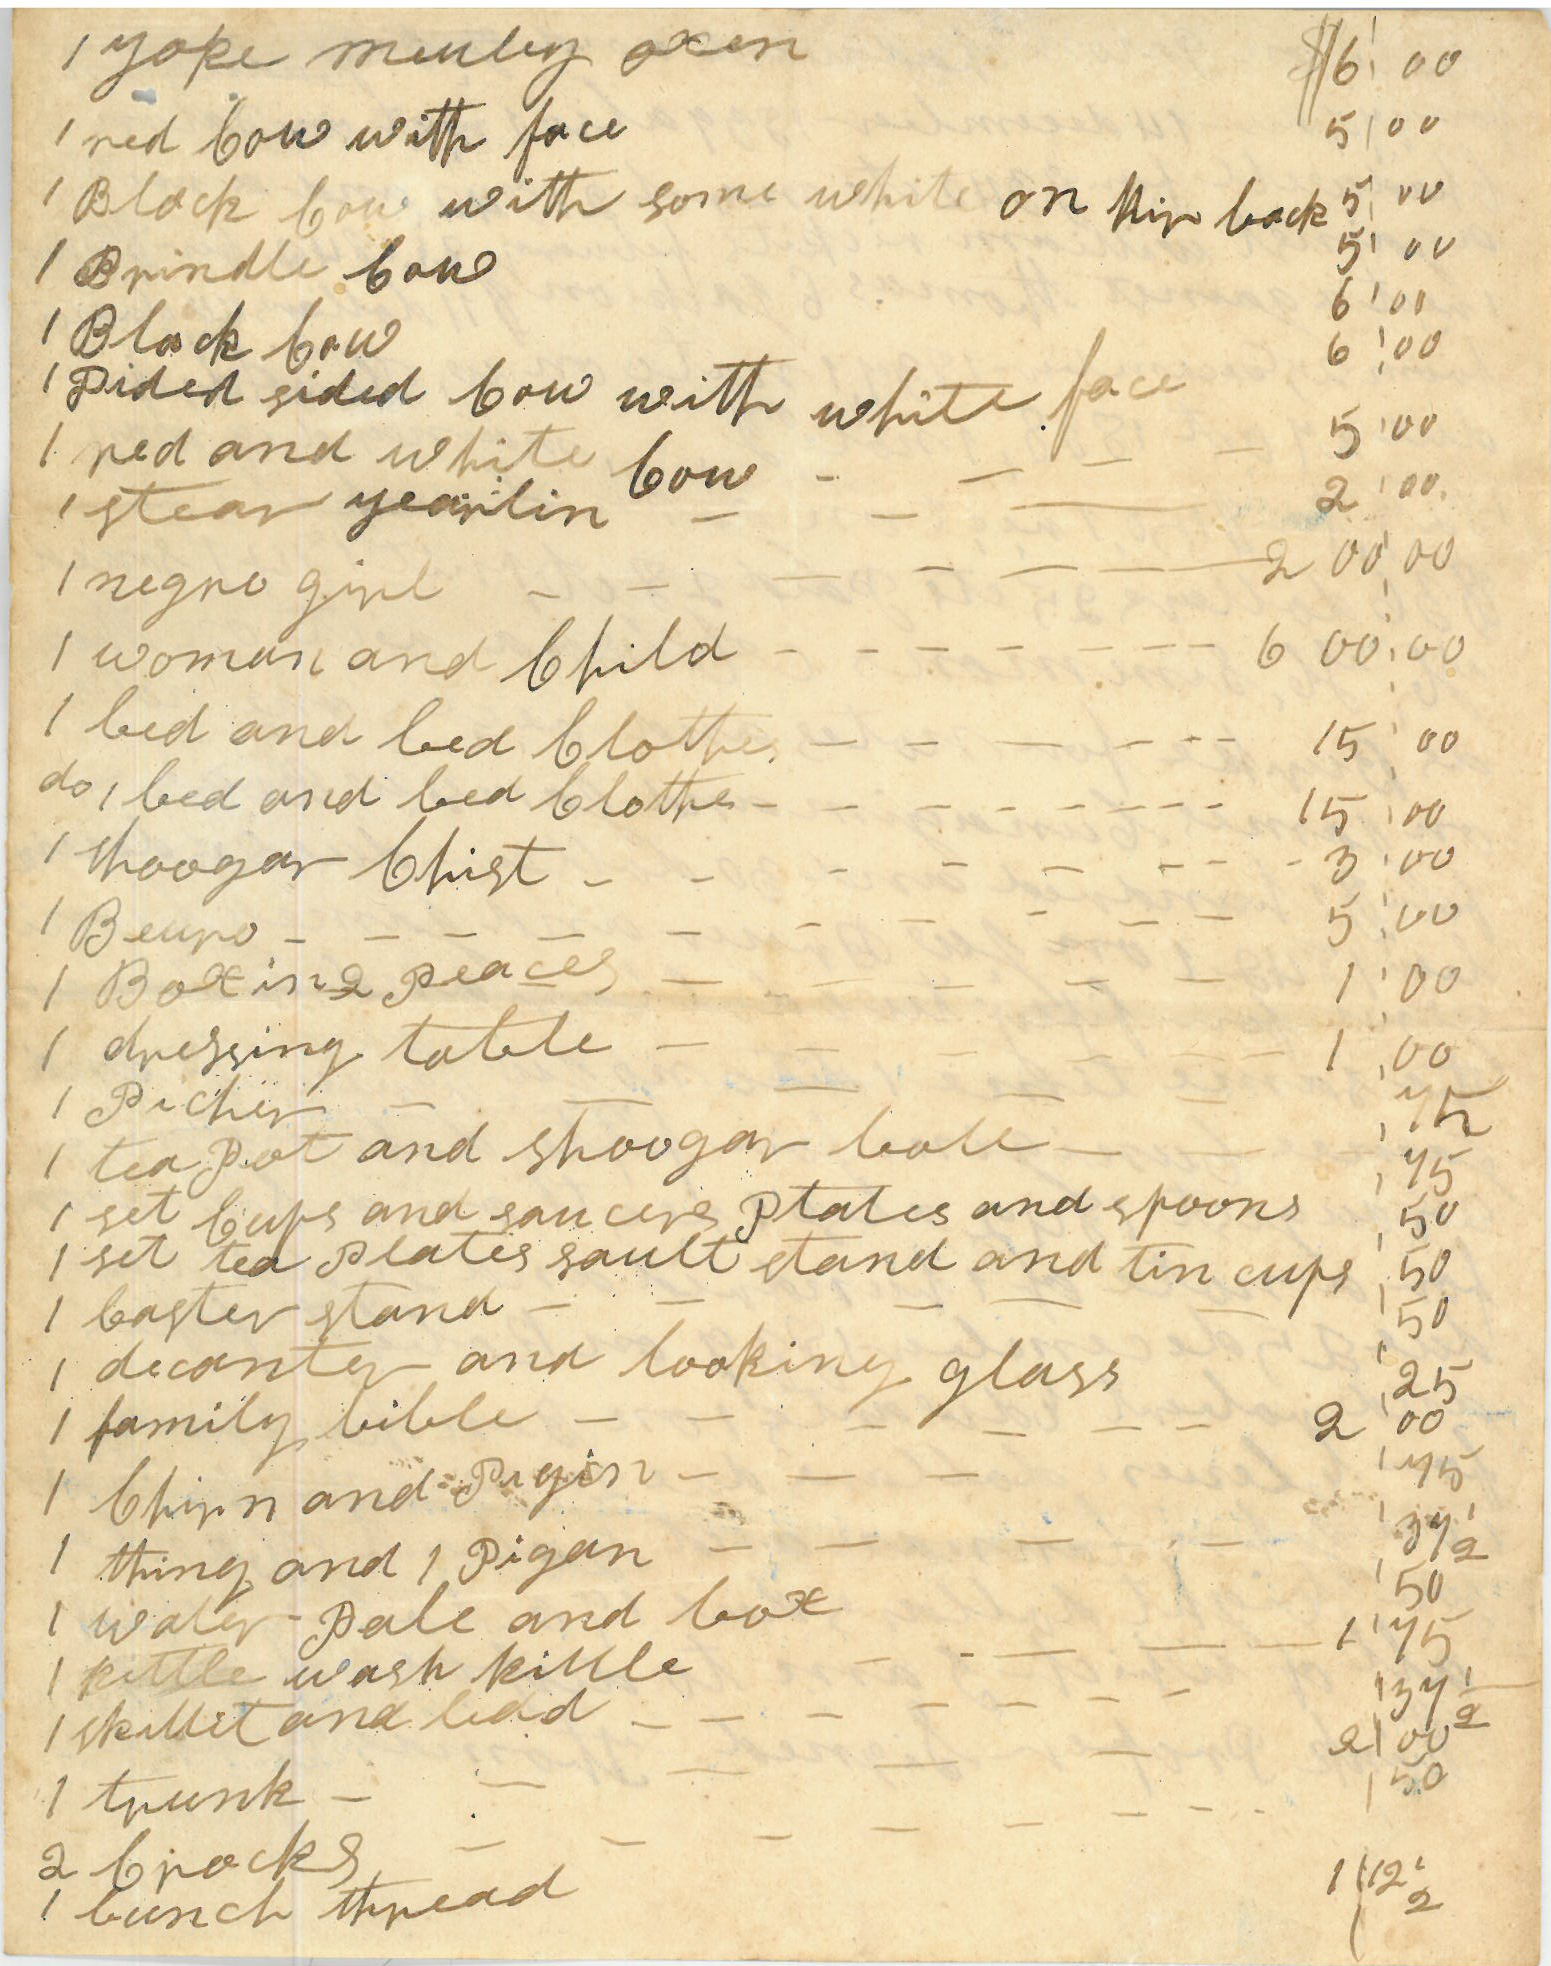 1 yoke meuley oxen $16 00
1 red Cow with face 5 00
1 Black Cow with some white on hir back 5 00
1 Brindle Cow 5 00
1 Black Cow 6 00
1 Pided sided Cow with white face 6 00
1 red and white Cow - - - - 5 00
1 stear yearlin - - - 2 00
1 negro girl - - - - - 200 00
1 woman and Child - - - - - - - - 600 00
1 bed and bed Clothes - - - - - - - 15 00
do 1 bed and bed Clothe - - - - - - - - 15 00
1 shoogar Chist - - - - - - - - 3 00
1 Beuro - - - - - - - - - 5 00
1 Box in 2 Peaces - - - - - 1 00
1 dressing table - - - - - - 1 00
1 Picher - - - - - - 75
1 tea Pot and shoogar bole - - - - 75
1 set Cups and saucers Plates and spoons 50
1 set tea Plates sault stand and tin cups 50
1 Caster stand - - - - - 50
1 decanter and looking glass 25
1 family bible - - - - - - 2 00
1 Chirn and Pigin - - - 75
1 thing and 1 Pigan - - - - - 37 1/2
1 water Pale and box 50
1 kittle wash kittle - - - - 1 75
1 skillet and ledd - - - - - - - 37 1/2
1 trunk - - - - - - 2 00
2 Crocks - - - - - - - - 50
1 bunch thread 1 12 1/2